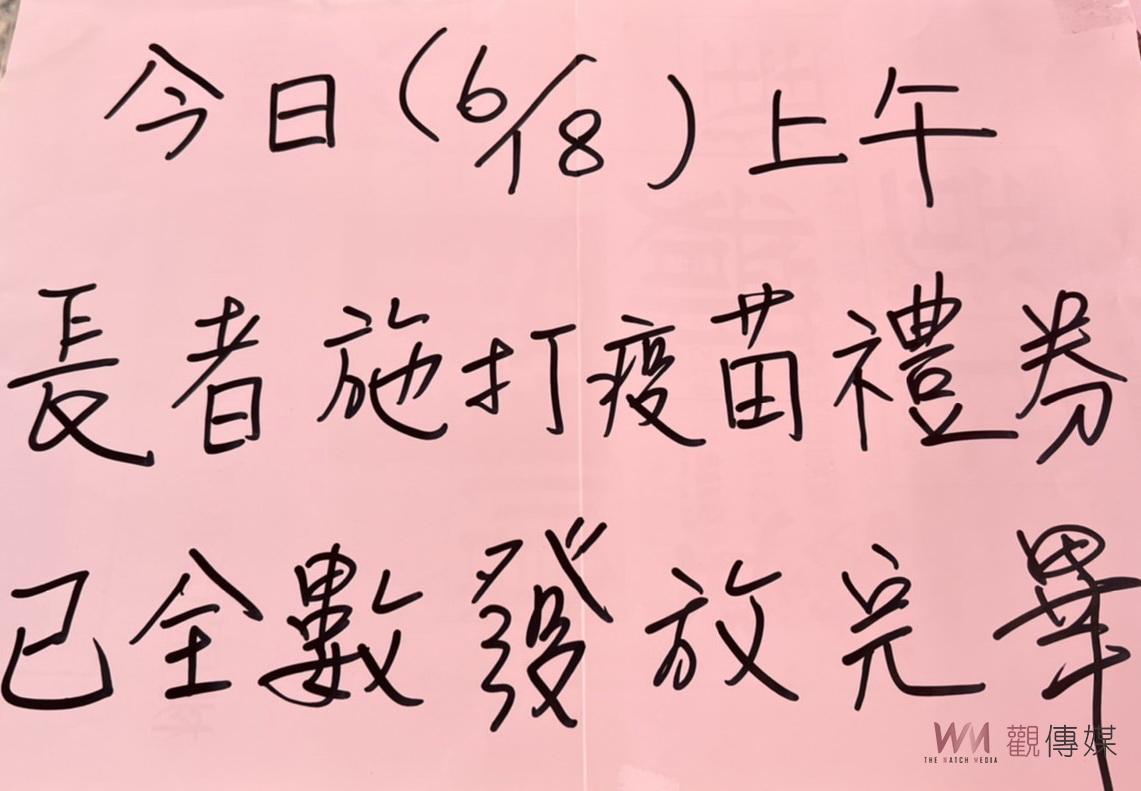 今日(6/18)上午
長者施打疫苗禮券
已全數發放完畢
WM 觀傳媒
THE WATCH MEDIA